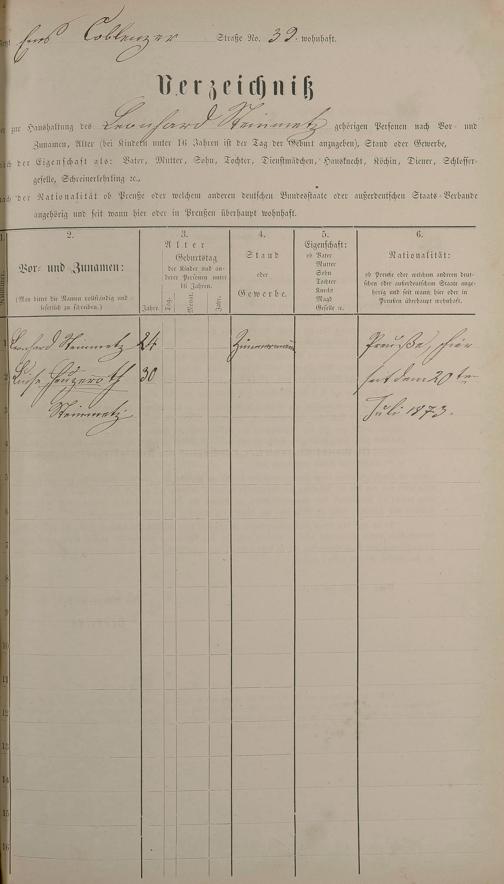 Ems Coblenzer Straße No. 32. wohnhaft.
Verzeichniß
zur Haushaltung des Leonhard Steinmetz gehörigen Personen nach Vor- und
Zunamen, Alter (bei Kindern unter 16 Jahren ist der Tag der Geburt anzugeben), Stand oder Gewerbe,
nach der Eigenschaft als: Vater, Mutter, Sohn, Tochter, Dienstmädchen, Hausknecht, Köchin, Diener, Schlosser-
geselle, Schreinerlehrling ꝛc.,
nach der Nationalität ob Preuße oder welchem anderen deutschen Bundesstaate oder außerdeutschen Staats-Verbande
angehörig und seit wann hier oder in Preußen überhaupt wohnhaft.
1.
2.
Vor- und Zunamen:
(Man bittet die Namen vollständig und
leserlich zu schreiben.)
3.
Alter
Geburtstag
der Kinder und an-
derer Personen unter
16 Jahren.
Jahre. Tag. Monat. Jahr.
4.
Stand
oder
Gewerbe.
5.
Eigenschaft:
ob Vater
Mutter
Sohn
Tochter
Knecht
Magd
Geselle ꝛc.
6.
Nationalität:
ob Preuße oder welchem anderen deut-
schen oder außerdeutschen Staate ange-
hörig und seit wann hier oder in
Preußen überhaupt wohnhaft.
1 Leonhard Steinmetz 24 Zimmermann Preuße, hier
2 Luise 30 seit dem 20ten
3 Steinmetz Juli 1873.
4
5
6
7
8
9
10
11
12
13
14
15
16